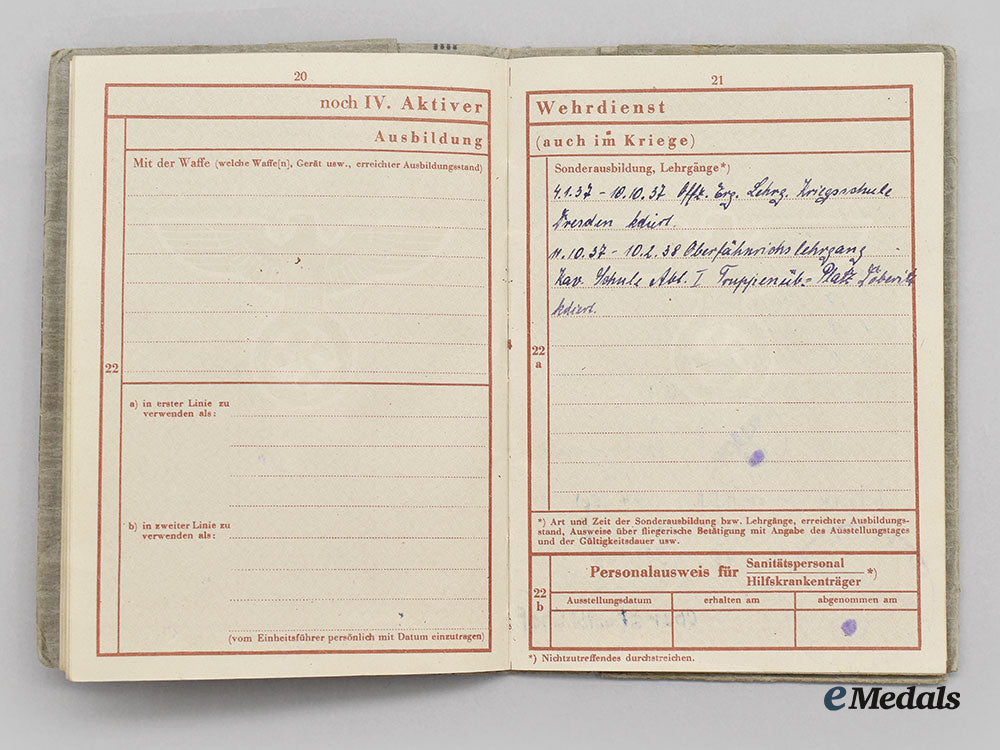 20
noch IV. Aktiver
Ausbildung
Mit der Waffe (welche Waffe[n], Gerät usw., erreichter Ausbildungsstand)
22
a) in erster Linie zu
verwenden als:
b) in zweiter Linie zu
verwenden als:
(vom Einheitsführer persönlich mit Datum einzutragen)
21
Wehrdienst
(auch im Kriege)
Sonderausbildung, Lehrgänge*)
4.1.37 - 10.10.37 Offz. Erg. Lehrg. Kriegsschule
Dresden kdiert.
11.10.37 - 10.2.38 Oberfähnrichslehrgang
Kav. Schule Abt. I Truppenüb.- Platz Döberitz
kdiert.
22
a
*) Art und Zeit der Sonderausbildung bzw. Lehrgänge, erreichter Ausbildungs-
stand, Ausweise über fliegerische Betätigung mit Angabe des Ausstellungstages
und der Gültigkeitsdauer usw.
22
b
Personalausweis für Sanitätspersonal *)
Hilfskrankenträger
Ausstellungsdatum erhalten am abgenommen am
*) Nichtzutreffendes durchstreichen.
eMedals